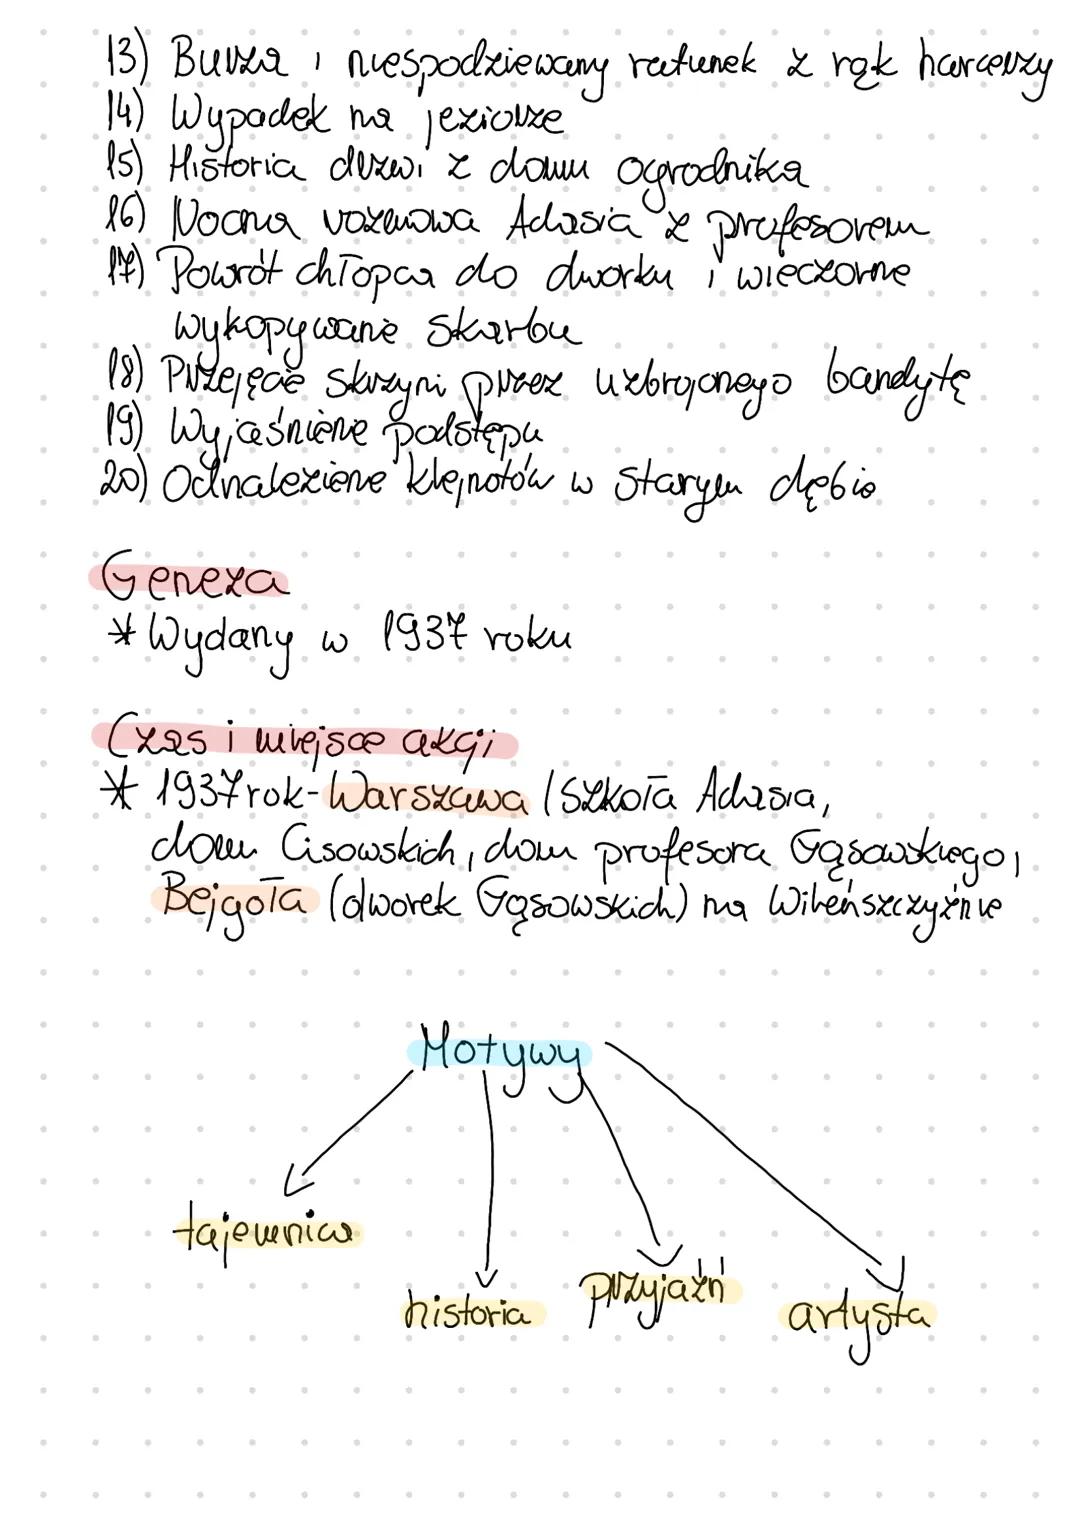 13) Burza i niespodziewany ratunek z rąk harcerzy
14) Wypadek na jeziorze
15) Historia drzwi z domu ogrodnika
16) Nocna rozmowa Adasia z profesorem
17) Powrót chłopca do dworku i wieczorne
wykopywanie skarbu
18) Przejęcie skrzyni przez uzbrojonego bandytę
19) Wyjaśnienie podstępu
20) Odnalezienie klejnotów w starym dębie
Geneza
* Wydany w 1937 roku
Czas i miejsce akcji
* 1937 rok - Warszawa (Szkoła Adasia,
dom Cisowskich, dom profesora Gąsowskiego,
Bejgoła (dworek Gąsowskich) na Wileńszczyźnie
Motywy
tajemnica
historia
przyjaźń
artysta